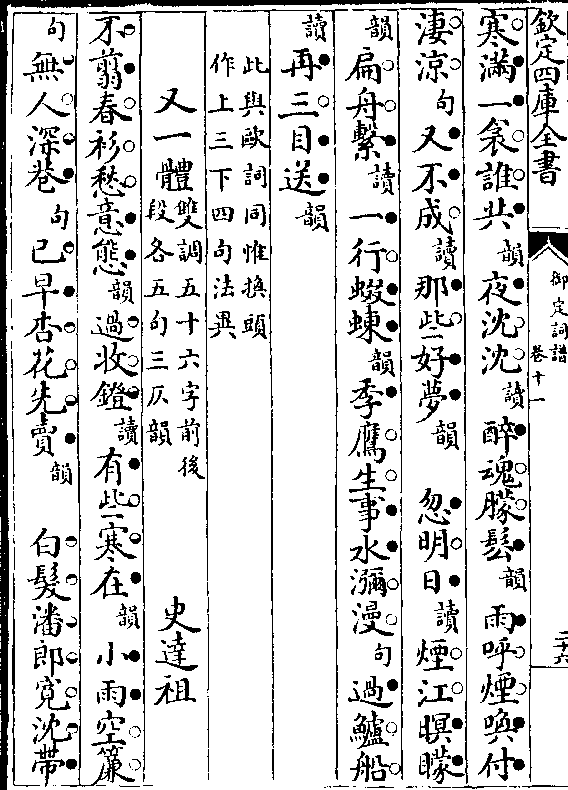 欽定四庫全書
御定詞譜
卷十一
二十六
寒滿一衾誰共韻夜沈沈讀醉魂朦鬆韻雨呼煙喚付
淒涼句又不成讀那些好夢韻　忽明日讀煙江暝矇
韻扁舟繫讀一行蝃蝀韻季鷹生事水瀰漫句過鱸船
讀再三目送韻
此與歐詞同惟換頭
作上三下四句法異
又一體
雙調五十六字前後
段各五句三仄韻
史達祖
不翦春衫愁意態韻過收鐙讀有些寒在韻小雨空簾
句無人深巷句已早杏花先賣韻　白髮潘郎寬沈帶